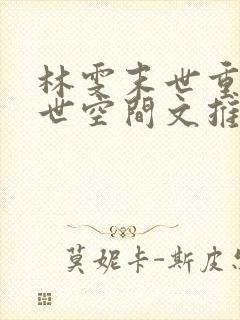 林雯末世重
世空間文推
莫妮卡-斯皮